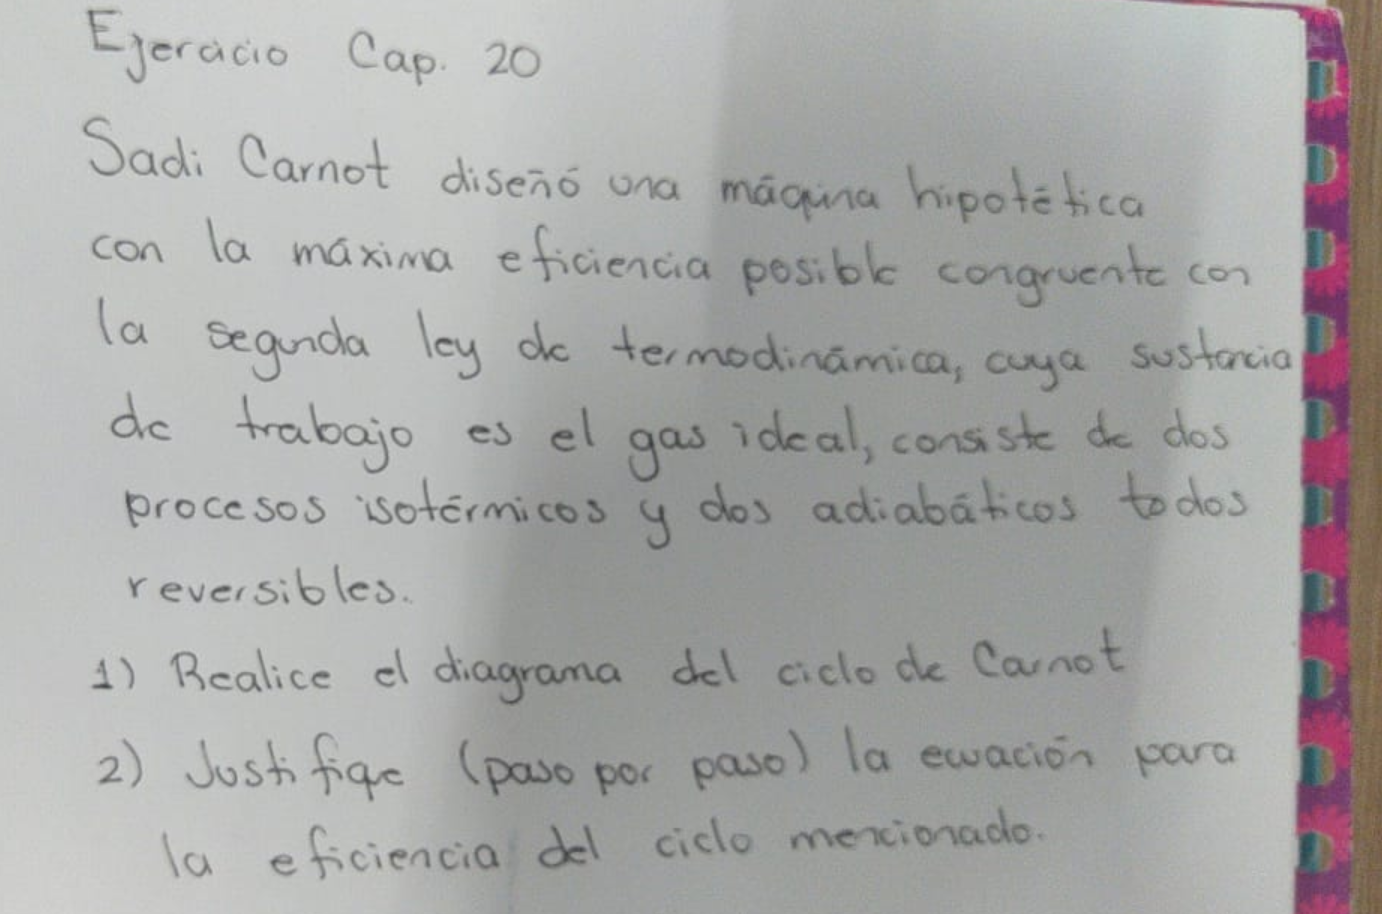 Ejercicio Cap. 20
Sadi Carnot diseñó una máquina hipotética
con la máxima eficiencia posible congruente con
la segunda ley de termodinámica, cuya sustancia
de trabajo es el gas ideal, consiste de dos
procesos isotérmicos y dos adiabáticos todos
reversibles.
1) Realice el diagrama del ciclo de Carnot
2) Justifique (paso por paso) la ecuación para
la eficiencia del ciclo mencionado.